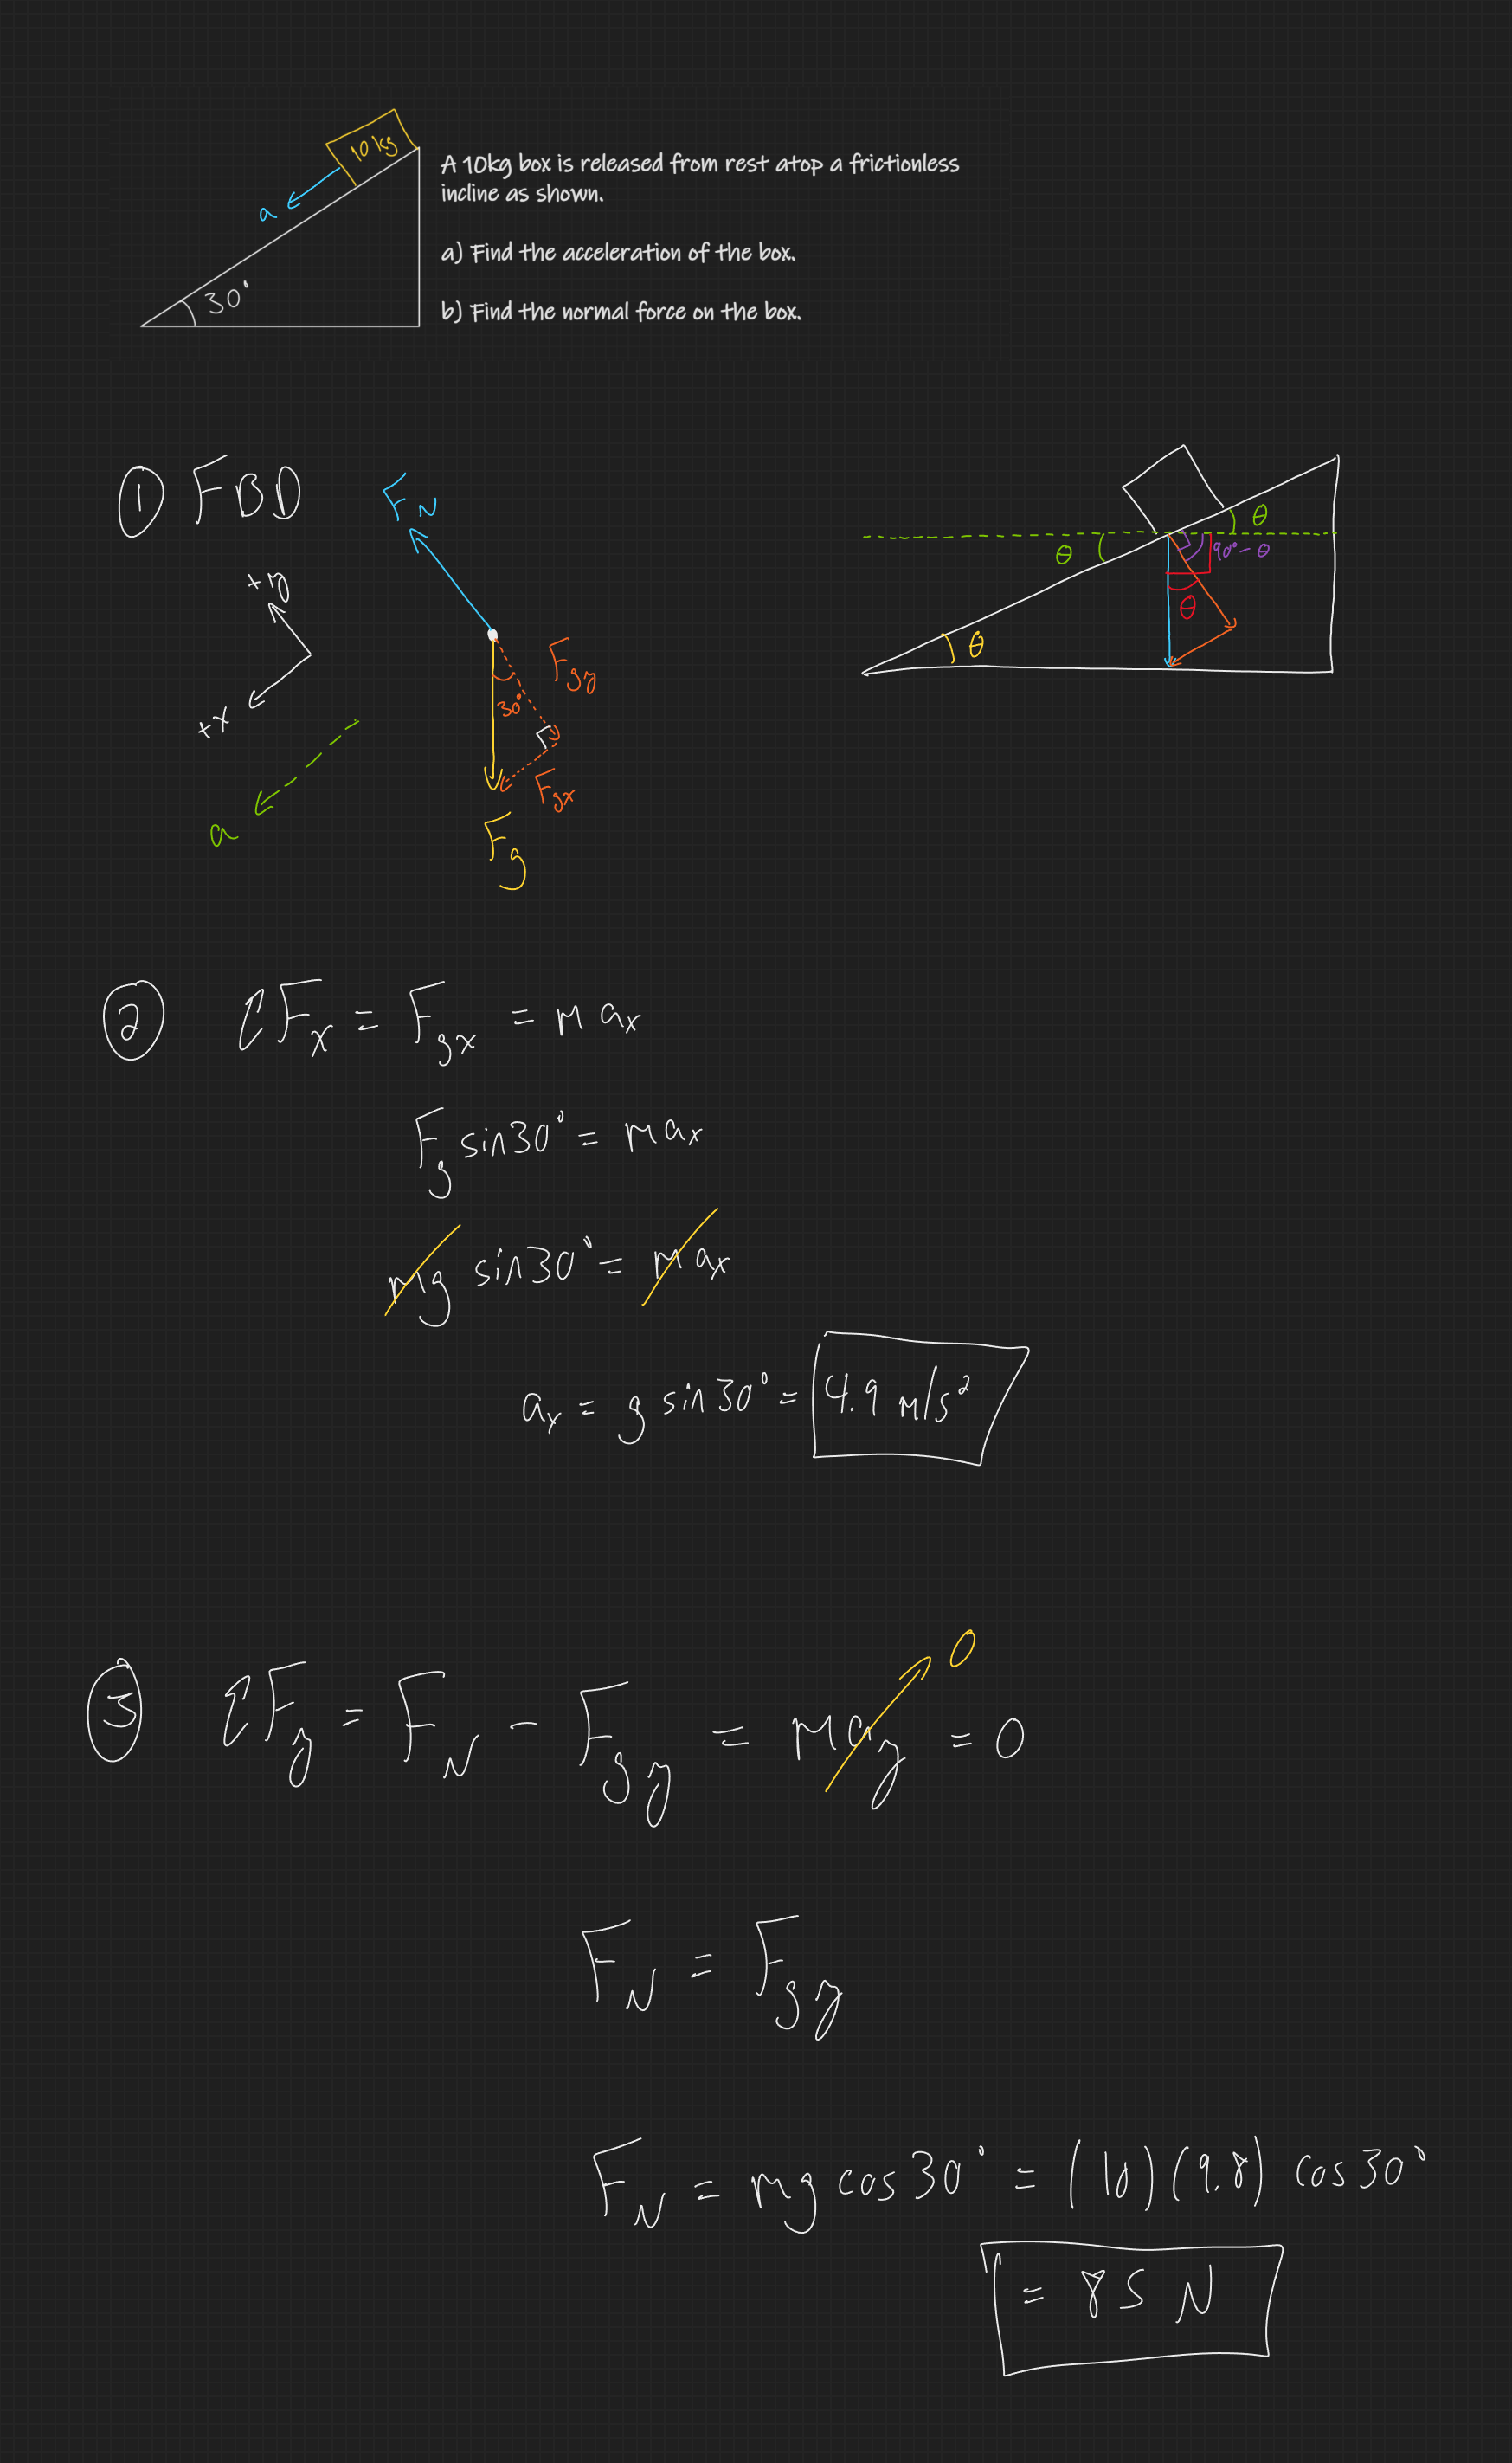 10kg
A 10kg box is released from rest atop a frictionless
incline as shown.
a
a) Find the acceleration of the box.
30°
b) Find the normal force on the box.
① FBD
F_N
+y
+x
a
30°
F_gy
F_gx
F_g
θ
θ
90° - θ
θ
θ
② ΣF_x = F_gx = m a_x
F_g sin30° = m a_x
mg sin30° = m a_x
a_x = g sin30° = 4.9 m/s²
③ ΣF_y = F_N - F_gy = ma_y = 0
0
F_N = F_gy
F_N = mg cos30° = (10)(9.8) cos30°
= 85 N